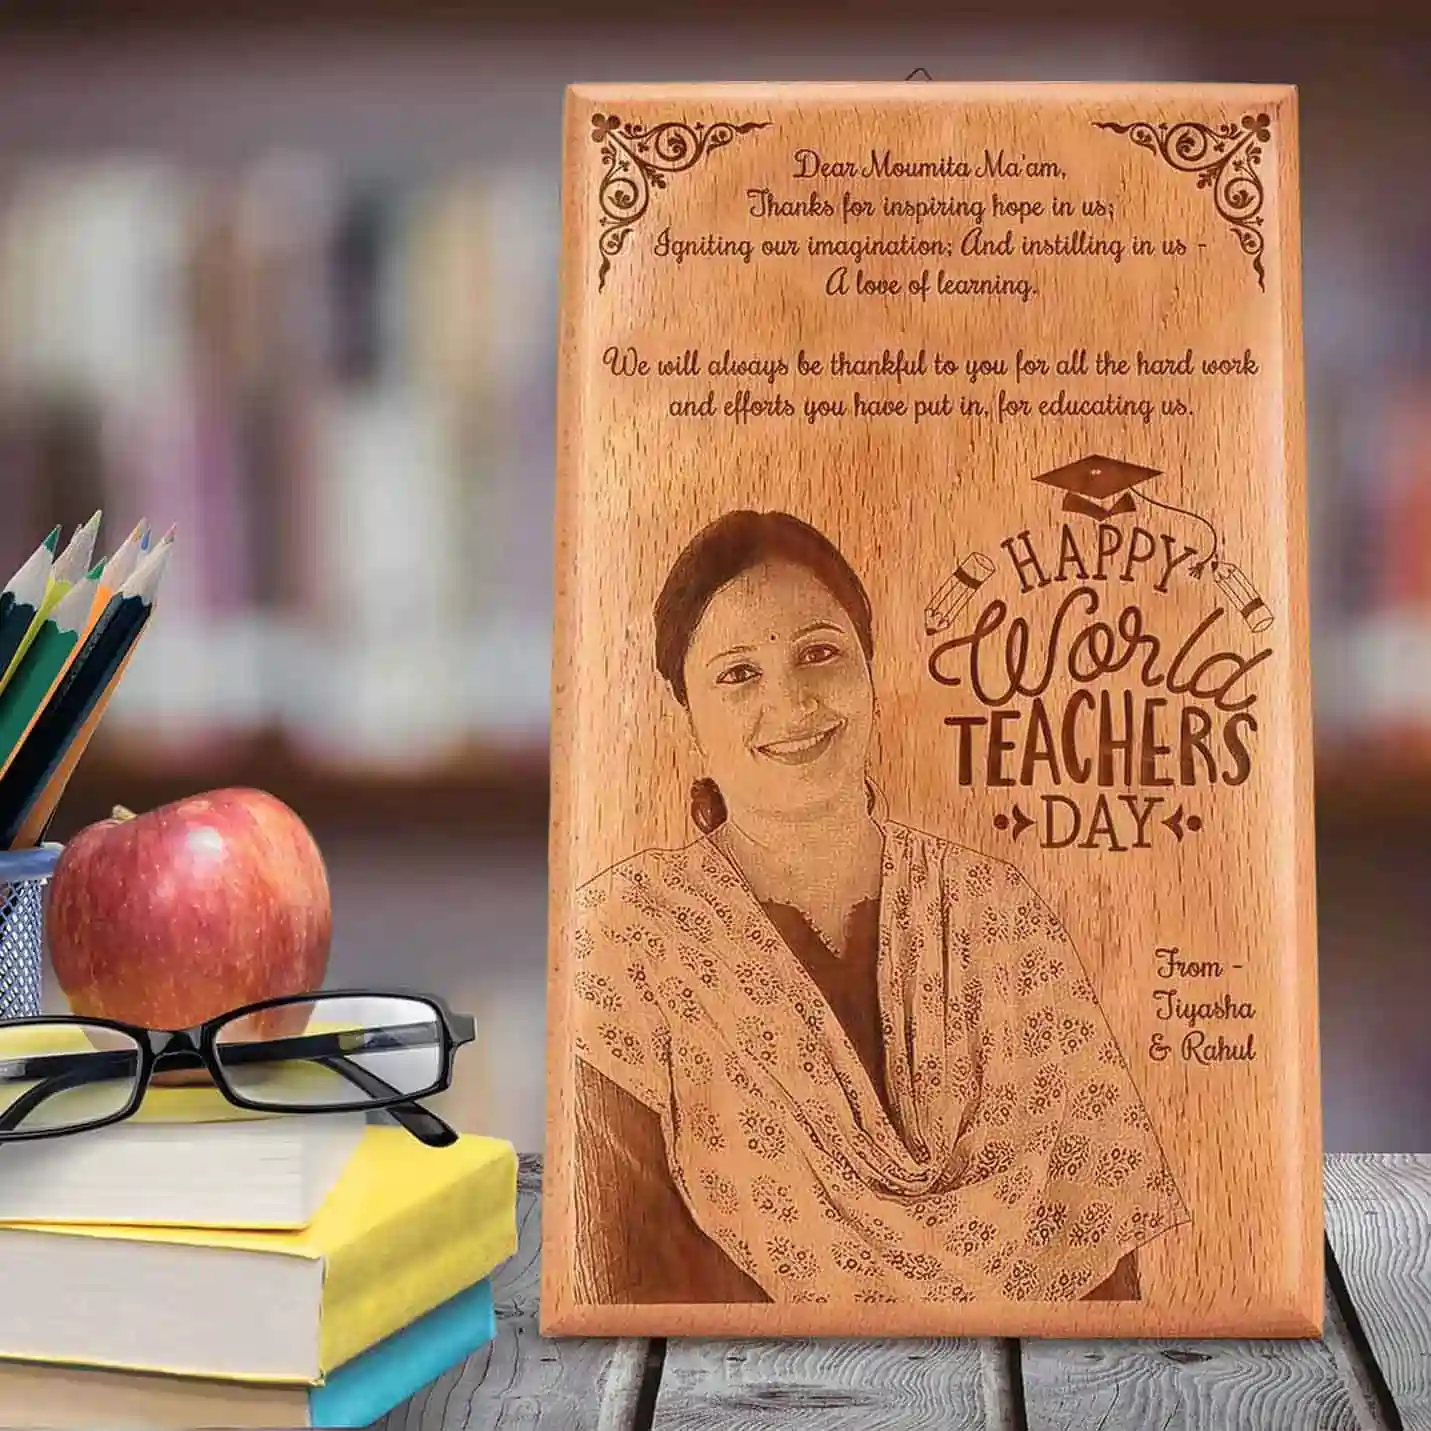 Dear Moumita Ma'am,
Thanks for inspiring hope in us;
Igniting our imagination; And instilling in us -
A love of learning.
We will always be thankful to you for all the hard work
and efforts you have put in, for educating us.
HAPPY
World
TEACHERS
DAY
From -
Tiyasha
& Rahul